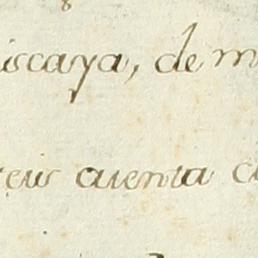 iscaya, de m
reis cuenta c